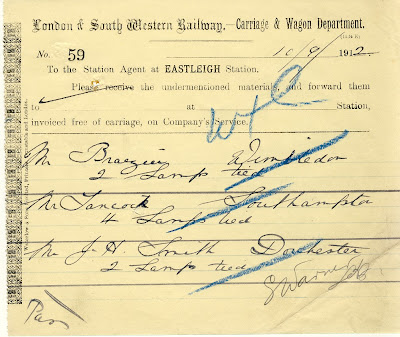 London & South Western Railway. — Carriage & Wagon Department.
No. 59 10/9/1912.
To the Station Agent at EASTLEIGH Station.
Please receive the undermentioned materials, and forward them
to at Station,
invoiced free of carriage, on Company's Service.
Mr Wimbledon
2 Lamps tied
Mr Hancock Southampton
4 Lamps tied
Mr J. H. Smith Dorchester
2 Lamps tied